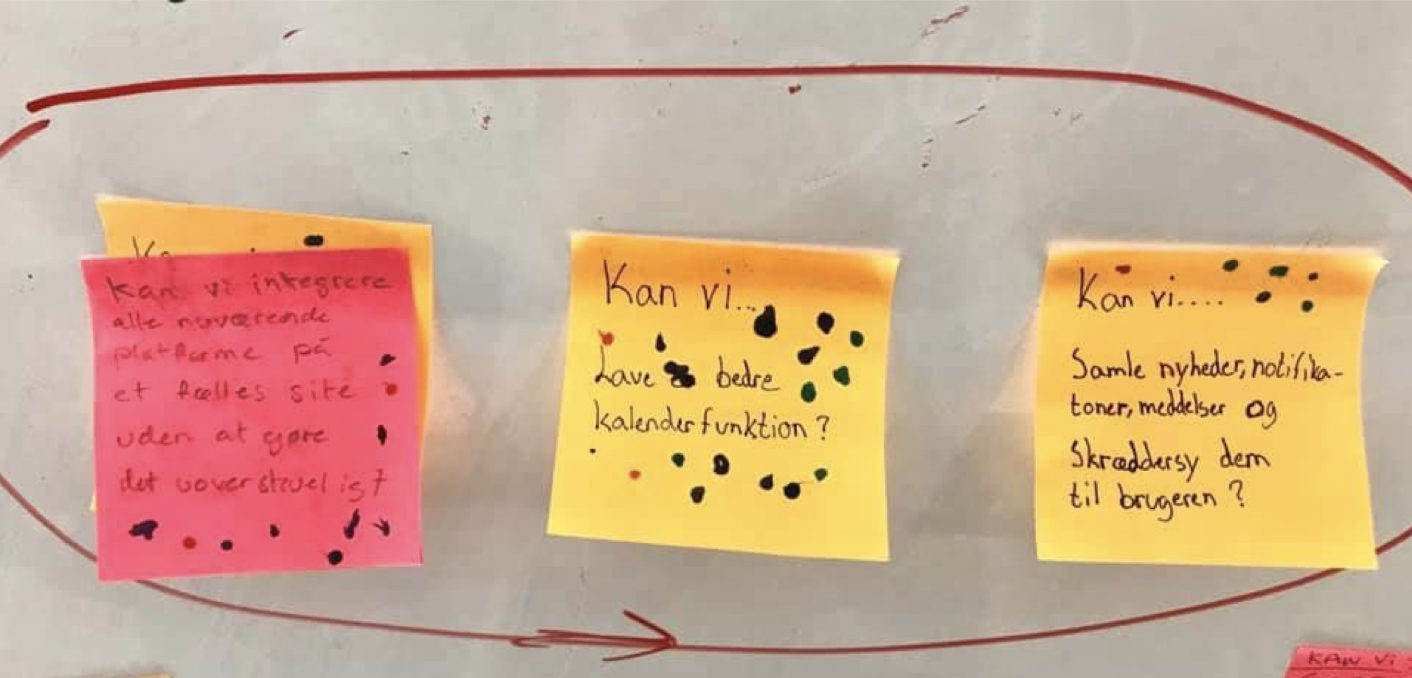 Ka
Kan vi integrere
alle nuværende
platforme på
et fælles site
uden at gøre
det uoverskueligt
Kan vi...
Lave bedre
kalenderfunktion?
Kan vi....
Samle nyheder, notifika-
toner, meddelser og
Skræddersy dem
til brugeren?
KAN Vi